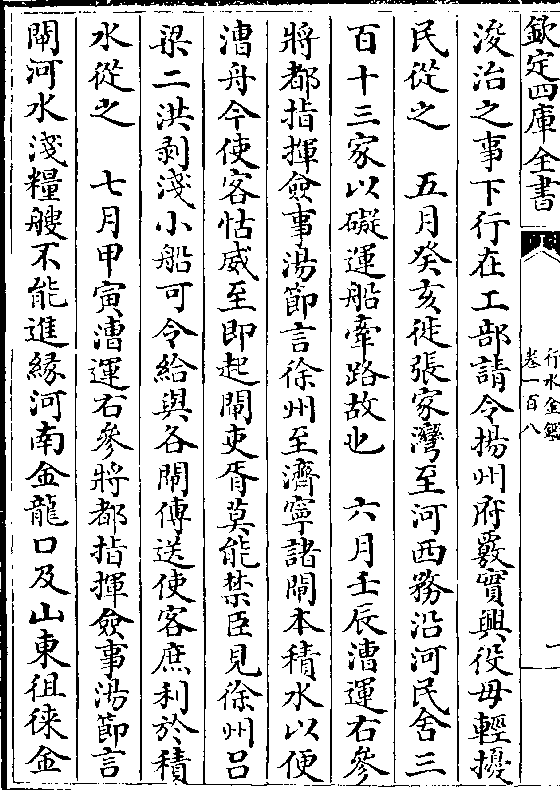 欽定四庫全書
行水金鑑
卷一百八
一
浚治之事下行在工部請令揚州府覈實興役毋輕擾
民從之　五月癸亥徙張家灣至河西務沿河民舍三
百十三家以礙運船牽路故也　六月壬辰漕運右參
將都指揮僉事湯節言徐州至濟寧諸閘本積水以便
漕舟今使客怙威至即起閘吏胥莫能禁臣見徐州吕
梁二洪剥淺小船可令給與各閘傅送使客庶利於積
水從之　七月甲寅漕運右參將都指揮僉事湯節言
閘河水淺糧艘不能進緣河南金龍口及山東徂徠金